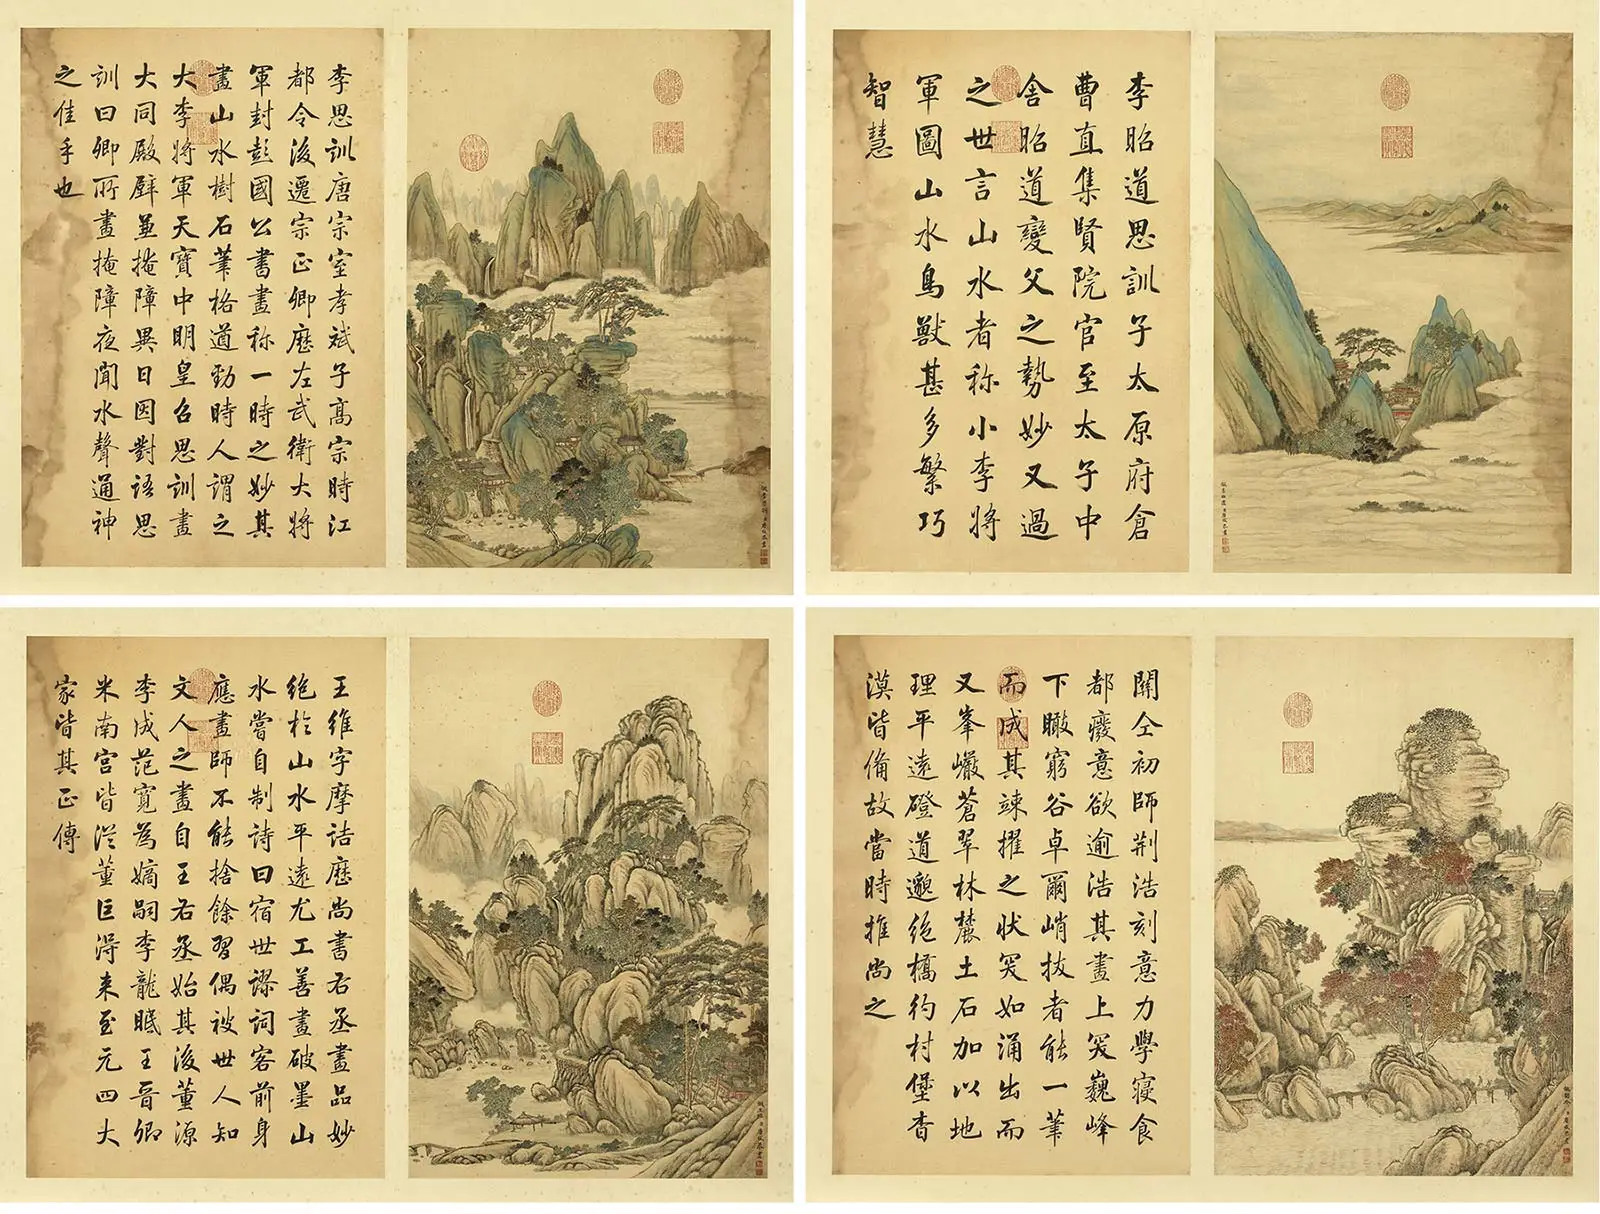 李思訓唐宗室孝斌子高宗時江
都令後遷宗正卿歷左武衛大將
軍封彭國公書畫称一時之妙其
畫山水樹石筆格遒勁時人謂之
大李將軍天寶中明皇召思訓畫
大同殿壁並掩障異日因對語思
訓曰卿所畫掩障夜聞水聲通神
之佳手也
李昭道思訓子太原府倉
曹直集賢院官至太子中
舍昭道變父之勢妙又過
之世言山水者称小李將
軍圖山水鳥獸甚多繁巧
智慧
王維字摩詰歷尚書右丞畫品妙
絕於山水平遠尤工善畫破墨山
水嘗自制詩曰宿世謬詞客前身
應畫師不能捨餘習偶被世人知
文人之畫自王右丞始其後董源
李成范寬為嫡嗣李龍眠王晉卿
米南宮皆從董巨得來至元四大
家皆其正傳
關仝初師荊浩刻意力學寢食
都癈意欲逾浩其畫上突巍峰
下瞰窮谷卓爾峭拔者能一筆
而成其竦擢之狀突如涌出而
又峯巖蒼翠林麓土石加以地
理平遠磴道邈絕橋彴村堡杳
漠皆備故當時推尚之